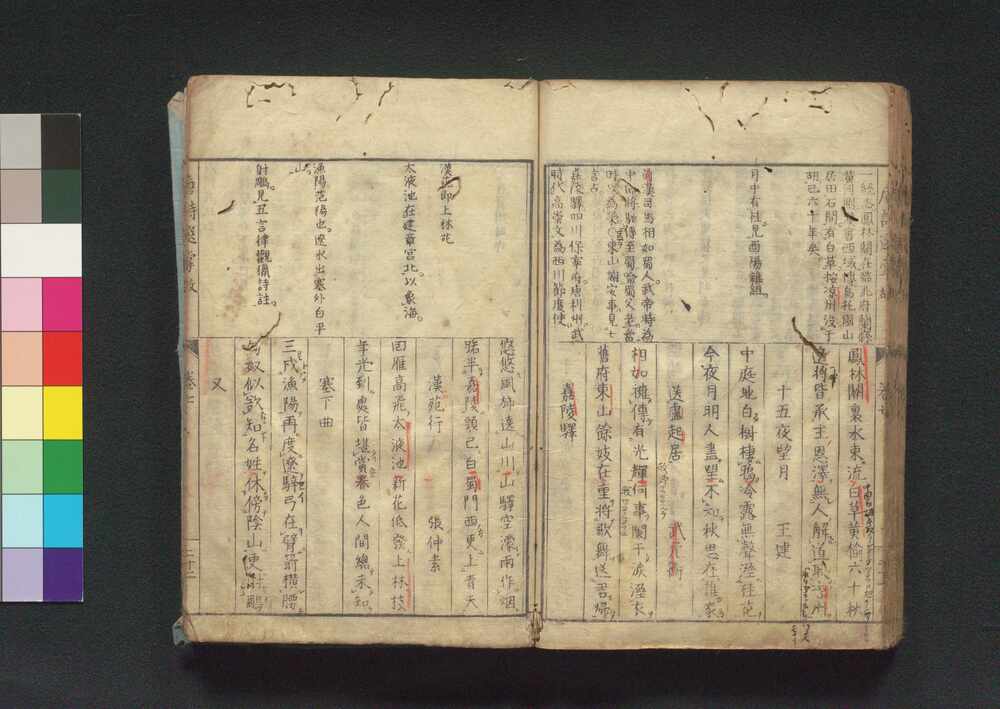 一統志鳳林關在臨洮府蘭州
黄河側唐書西域傳鳥杜國山
居田石間有白草按涼州沒于
胡已六十年矣
月中有桂見酉陽雜組
漢司馬相如蜀人武帝時為
中郎將馳傳至蜀諭蜀父老
時以為榮東山謝安事見七
言古
嘉陵驛四川保寧府唐利州武
時代高崇文為西川節度使
鳳林關裏水東流白草黄榆六十秋
邊將皆承主恩澤無人解道取涼州
十五夜望月 王建
中庭地白樹棲鴉冷露無聲溼桂花
今夜月明人盡望不知秋思在誰家
送盧起居 武元衡
相如擁傳有光輝何事闌干淚溼衣
舊府東山餘妓在重將歌舞送君歸
嘉陵驛
漢苑即上林苑
太液池在建章宮北以象海
漁陽范陽也遼水出塞外白平
山
射鵰見五言律觀獵詩註
悠悠風斾遶山川山驛空濛雨作烟
路半嘉陵頭已白蜀門西更上青天
漢苑行 張仲素
回雁高飛太液池新花低發上林枝
年光到處皆堪賞春色人間總未知
塞下曲
三戍漁陽再度遼騂弓在臂箭橫腰
匈奴似欲知名姓休傍陰山更射鵰
又
卷七